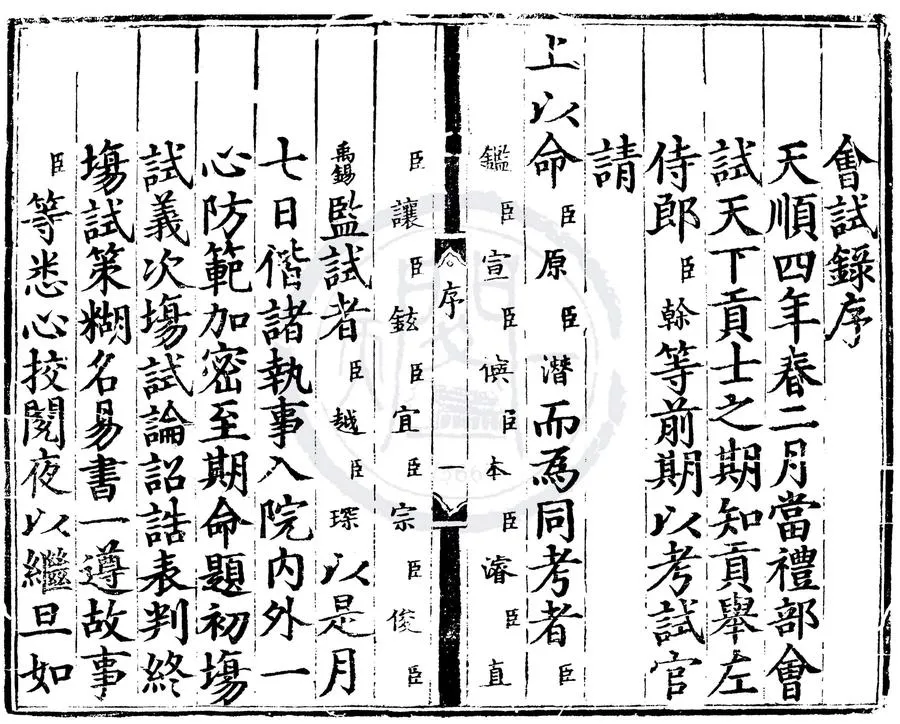 會試錄序
天順四年春二月當禮部會
試天下貢士之期知貢舉左
侍郎臣幹等前期以考試官
請
上以命臣原臣潛而為同考者臣
鑑臣宣臣俁臣本臣濬臣直
序
一
臣讓臣鉉臣宜臣宗臣俊臣
禹錫監試者臣越臣琛以是月
七日偕諸執事入院內外一
心防範加密至期命題初場
試義次塲試論詔誥表判終
塲試策糊名易書一遵故事
臣等悉心挍閱夜以繼旦如